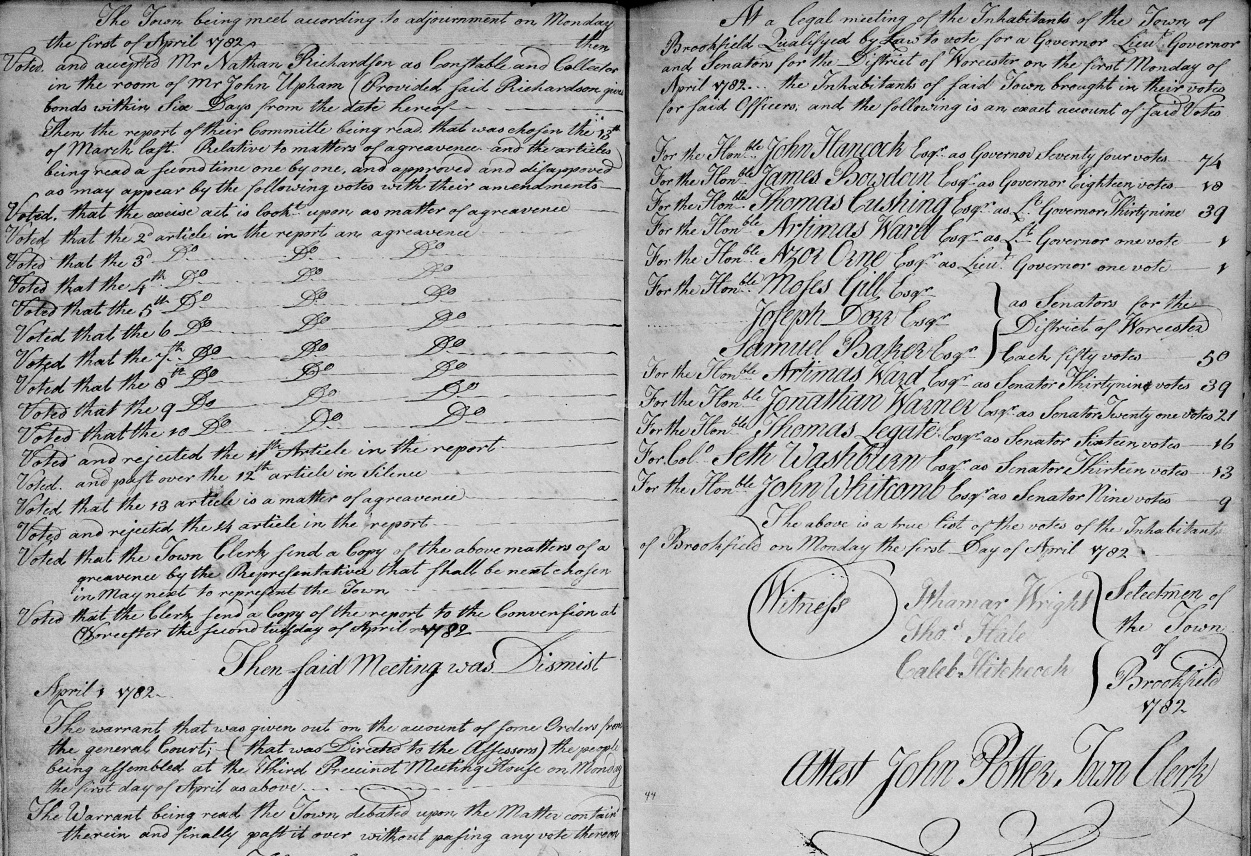 The Town being meet according to adjournment on Monday
the first of April 1782 then
Voted and accepted Mr Nathan Richardson as Constable and Collector
in the room of Mr John Upham (Provided said Richardson give
bonds within Six Days from the date hereof
Then the report of their Committe being read that was chosen the 13th
of March last Relative to matters of agreavence and the articles
being read a second time one by one, and approved and disapproved
as may appear by the following votes with their amendments
Voted, that the excise act is look't upon as matter of agreavence
Voted that the 2d article in the report an agreavence
Voted that the 3d Do Do Do
Voted that the 4th Do Do Do
Voted that the 5th Do Do Do
Voted that the 6 Do Do Do
Voted that the 7th Do Do Do
Voted that the 8th Do Do Do
Voted that the 9 Do Do Do
Voted that the 10 Do Do Do
Voted and rejected the 11th Article in the report
Voted. and past over the 12th article in Silence
Voted that the 13 article is a matter of agreavence
Voted and rejected the 14 article in the report
Voted that the Town Clerk send a Copy of the above matters of a
greavence by the Representative that shall be next chosen
in May next to represent the Town
Voted that the Clerk send a Copy of the report to the Convension at
Worcester the second tusday of April 1782
Then said Meeting was Dismist
April 1 1782
The warrant that was given out on the account of some Orders from
the general Court; (that was Directed to the Assessors) the people
being assembled at the Third Precinct Meeting House on Monday
the first day of April as above
The Warrant being read the Town debated upon the Matter contain
therein and finally past it over without pasing any vote thereon
At a legal meeting of the Inhabitants of the Town of
Brookfield Qualifyed by Law to vote for a Governor Lieut Governor
and Senators for the District of Worcester on the first Monday of
April 1782 the Inhabitants of said Town brought in their votes
for said Officers, and the following is an exact account of said Votes
For the Honble John Hancock Esqr as Governor Seventy four votes 74
For the Honble James Bowdoin Esqr as Governor Eighteen votes 18
For the Honble Thomas Cushing Esqr as Lt Governor Thirty nine 39
For the Honble Artimas Ward Esqr as Lt Governor one vote 1
For the Honble Azor Orne Esqr as Lieut Governor one vote 1
For the Honble Moses Gill Esqr
Joseph Dorr Esqr
Samuel Baker Esqr
as Senators for the
District of Worcester
Each fifty votes 50
For the Honble Artimas Ward Esqr as Senator Thirtynine votes 39
For the Honble Jonathan Warner Esqr as Senator Twenty one votes 21
For the Honble Thomas Legate Esqr as Senator Sixteen votes 16
For Colo Seth Washburn Esqr as Senator Thirteen votes 13
For the Honble John Whitcomb Esqr as Senator Nine votes 9
The above is a true list of the votes of the Inhabitants
of Brookfield on Monday the first Day of April 1782
Witness
Ithamar Wright
Thos Hale
Caleb Hitchcock
Selectmen of
the Town
of
Brookfield
1782
Attest John Potter Town Clerk
44